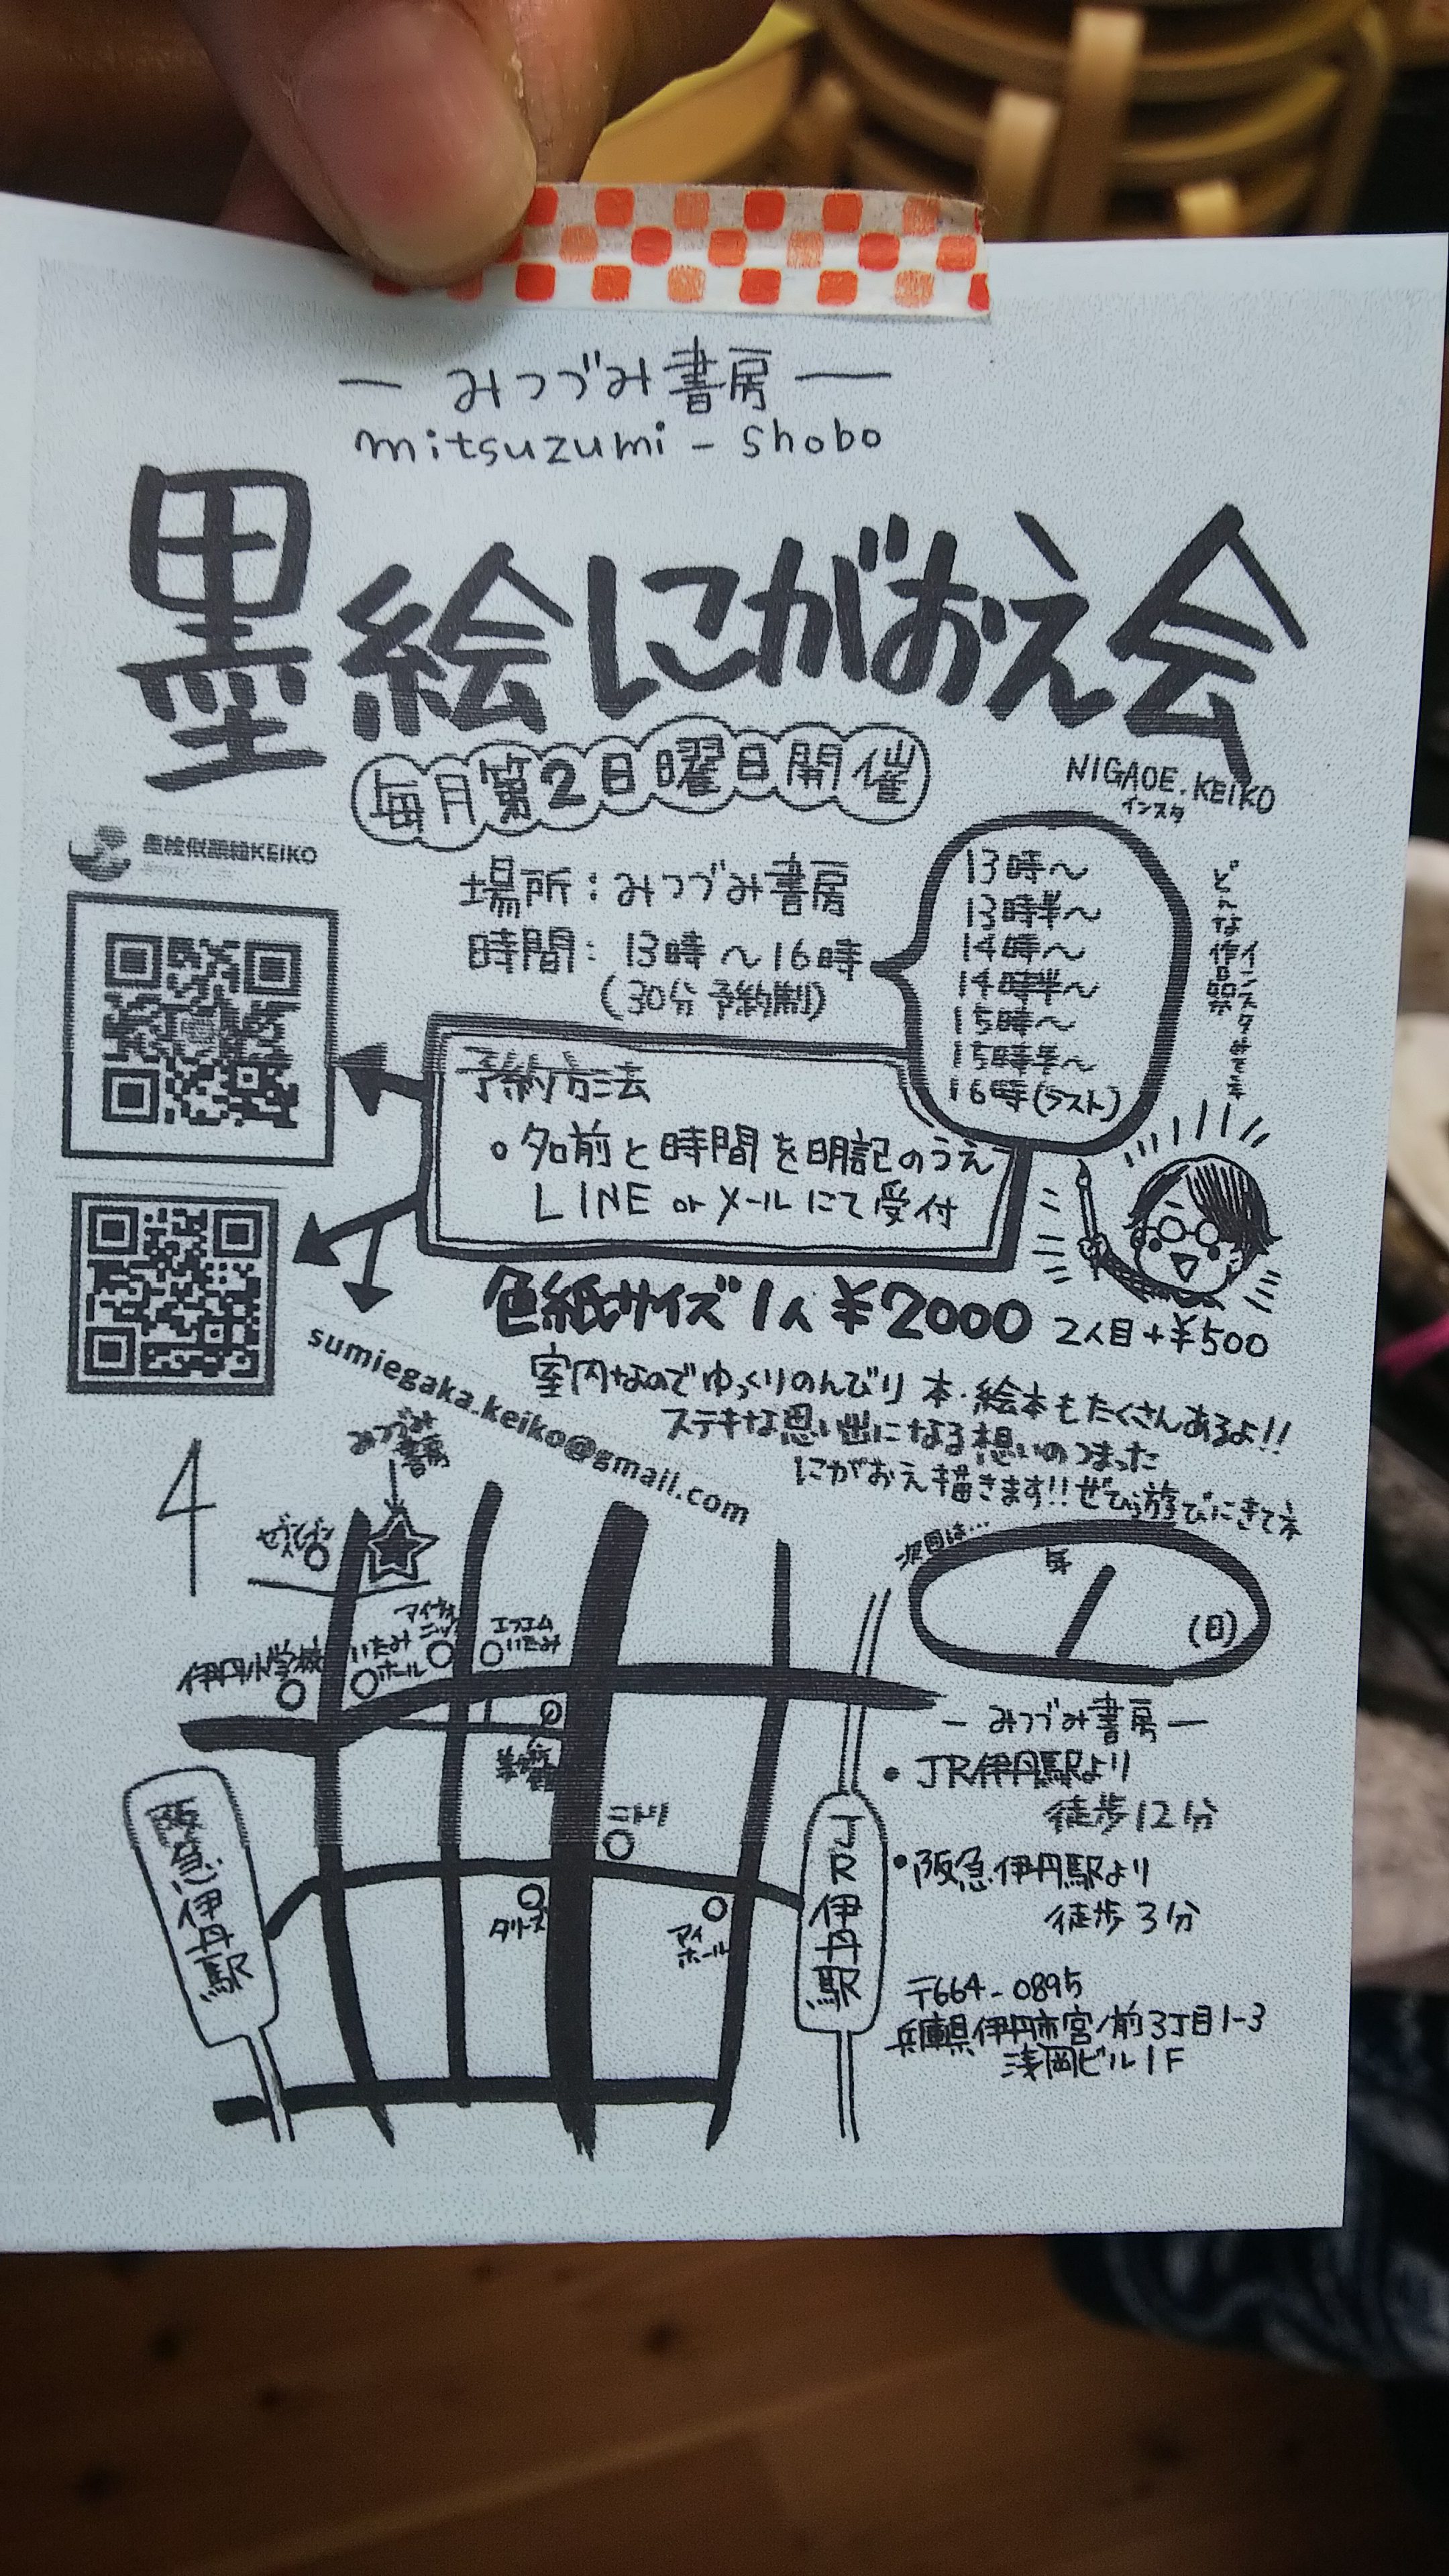 ― みつづみ書房 ―
mitsuzumi - shobo
墨絵にがおえ会
毎月第2日曜日開催
NIGAOE.KEIKO
インスタ
墨絵似顔絵KEIKO
場所：みつづみ書房
時間：13時～16時
(30分予約制)
13時～
13時半～
14時～
14時半～
15時～
15時半～
16時(ラスト)
どんな作品か
インスタ
予約方法
・名前と時間を明記のうえ
LINE or メールにて受付
sumiegaka.keiko@gmail.com
色紙サイズ 1人 ¥2000 2人目+¥500
室内なのでゆっくりのんびり 本・絵本もたくさんあるよ!!
ステキな思い出になる想いのつまった
にがおえ描きます!!ぜひ遊びにきてネ
次回は…
/
(日)
4
みつづみ
書房
伊丹小学校
いたみ
ホール
エフエム
いたみ
ニトリ
タリーズ
アイ
ホール
阪急伊丹駅
JR伊丹駅
― みつづみ書房 ―
・JR伊丹駅より
徒歩12分
・阪急伊丹駅より
徒歩3分
〒664-0895
兵庫県伊丹市宮ノ前3丁目1-3
浅岡ビル1F